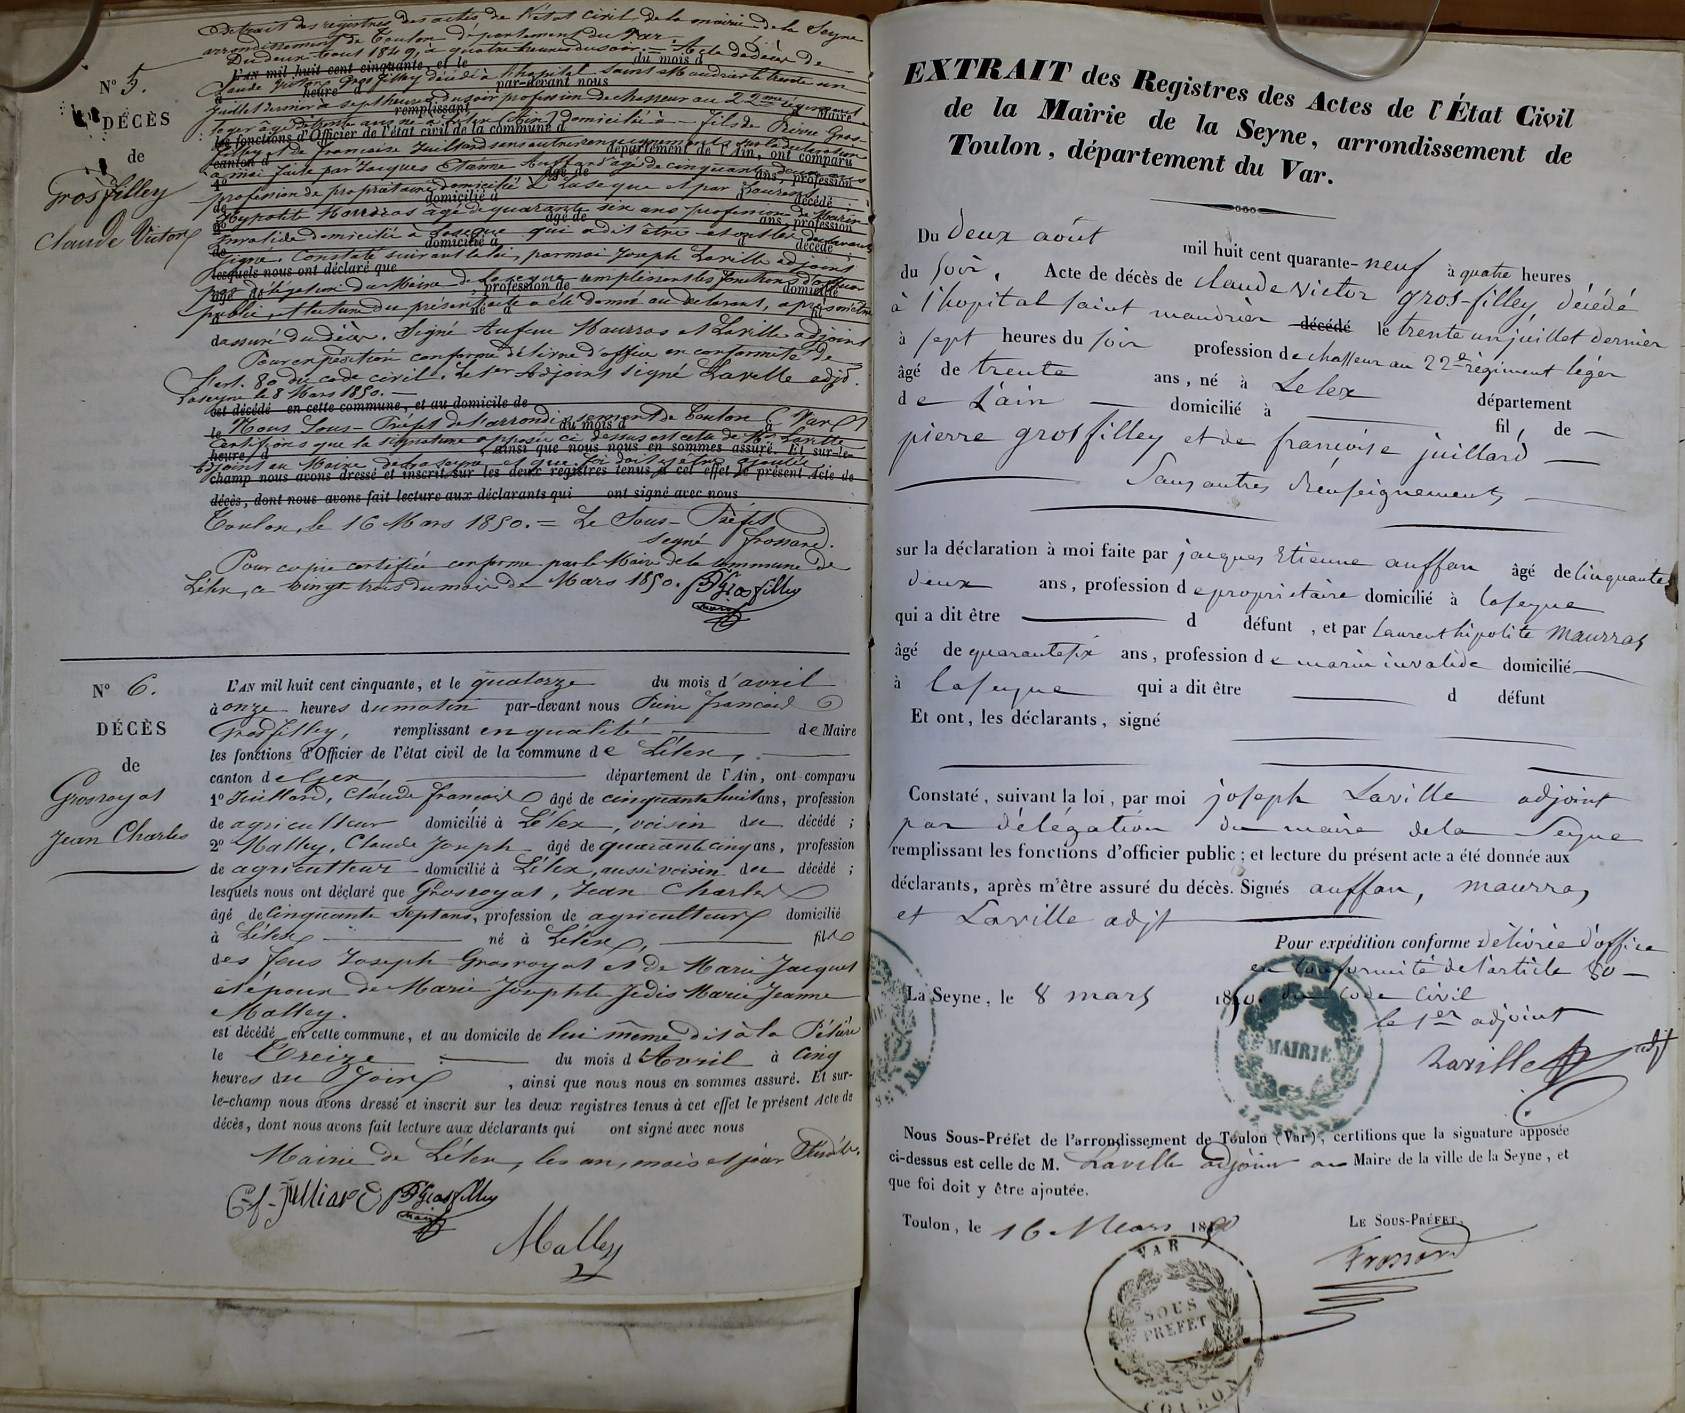 Extrait des registres des actes de l'état civil de la mairie de la Seyne
arrondissement de Toulon département du Var
Du deux aout 1849, à quatre heures du soir = Acte de décès de
L'AN mil huit cent cinquante, et le du mois d
Claude Victor Gros filley décédé à l'hopital Saint Mandrier le trente un
à heure d par-devant nous
juillet dernier à sept heures du soir profession de chasseur au 22me régiment
remplissant Maire
léger âgé de trente ans né à Lelex (Ain) domicilié à — fils de Pierre Gros-
les fonctions d'Officier de l'état civil de la commune d
filley et de Francoise Juillard sans autres renseignements sur la déclaration
canton d département de l'Ain, ont comparu
à moi faite par Jacques Etienne Auffan âgé de cinquante deux ans
1º âgé de ans, profession
profession de propriétaire domicilié à Laseyne et par Laurent
de domicilié à d décédé ;
Hypolite Maurras âgé de quarante six ans profession de Marin
2º âgé de ans, profession
invalide domicilié à Laseyne qui a dit être et ont les déclarants
de domicilié à d décédé ;
signé. Constaté suivant la loi, par moi Joseph Laville adjoint
lesquels nous ont déclaré que
par délégation du Maire de Laseyne remplissant les fonctions d'officier
âgé de profession de domicilié
public, et lecture du présent acte a été donné au déclarant, après m'être
à né à fil
assuré du décès. Signé Auffan Maurras et Laville adjoint
Pour expédition conforme délivrée d'office en conformité de
l'art. 80 du code civil. Le 1er Adjoint signé Laville adjt.
Laseyne le 8 Mars 1850. —
est décédé en cette commune, et au domicile de
Nous Sous-Préfet de l'arrondissement de Toulon (Var)
le du mois d à
Certifions que la signature apposée ci dessus est celle de Mr Laville
heure d , ainsi que nous nous en sommes assuré. Et sur-le-
adjoint au Maire de Laseyne et que foi doit y être ajoutée
champ nous avons dressé et inscrit sur les deux registres tenus à cet effet le présent Acte de
décès, dont nous avons fait lecture aux déclarants qui ont signé avec nous
Toulon, le 16 Mars 1850. = Le Sous-Préfet
signé frossard.
Pour copie certifiée conforme par le Maire de la commune de
Lélex, ce vingt trois du mois de Mars 1850. P Fs Grosfilley
Maire
Nº 5.
DÉCÈS
de
Grosfilley
Claude Victor
Nº 6.
DÉCÈS
de
Grosroyat
Jean Charles
L'AN mil huit cent cinquante, et le quatorze du mois d'avril
à onze heures du matin par-devant nous Pierre francois
Grosfilley, remplissant en qualité de Maire
les fonctions d'Officier de l'état civil de la commune de Lélex,
canton de Gex, département de l'Ain, ont comparu
1º Juillard, Claude francois âgé de cinquante huit ans, profession
de agriculteur domicilié à Lélex, voisin du décédé ;
2º Malley, Claude Joseph âgé de quarante cinq ans, profession
de agriculteur domicilié à Lélex, aussi voisin du décédé ;
lesquels nous ont déclaré que Grosroyat, Jean Charles
âgé de Cinquante Sept ans, profession de agriculteur domicilié
à Lélex né à Lélex, fils
des feus Joseph Grosroyat et de Marie Jacquet
et époux de Marie Josephte Jedis Marie Jeanne
Malley.
est décédé en cette commune, et au domicile de lui même dit à la
le Treize du mois d'Avril à Cinq
heures du Soir , ainsi que nous nous en sommes assuré. Et sur-
le-champ nous avons dressé et inscrit sur les deux registres tenus à cet effet le présent Acte de
décès, dont nous avons fait lecture aux déclarants qui ont signé avec nous
Mairie de Lélex, les an, mois et jour susdits.
C-f-Julliard P Fs Grosfilley
Maire
Malley
EXTRAIT des Registres des Actes de l'État Civil
de la Mairie de la Seyne, arrondissement de
Toulon, département du Var.
Du deux août mil huit cent quarante-neuf à quatre heures
du soir, Acte de décès de claude victor gros-filley, décédé
à l'hopital saint mandrier décédé le trente un juillet dernier
à sept heures du soir profession de chasseur au 22e régiment léger
âgé de trente ans, né à Lelex département
de L'ain domicilié à fil, de
pierre grosfilley et de françoise juillard
Sans autres renseignements
sur la déclaration à moi faite par jacques Etienne auffan âgé de cinquante
deux ans, profession de propriétaire domicilié à laseyne
qui a dit être d défunt, et par Laurent hipolite maurras
âgé de quarante six ans, profession de marin invalide domicilié
à laseyne qui a dit être d défunt
Et ont, les déclarants, signé
Constaté, suivant la loi, par moi joseph Laville adjoint
par délégation du maire de la Seyne
remplissant les fonctions d'officier public ; et lecture du présent acte a été donnée aux
déclarants, après m'être assuré du décès. Signés auffan, maurras
et Laville adjt
Pour expédition conforme délivrée d'office
en conformité de l'article 80
La Seyne, le 8 mars 1850. du Code Civil
le 1er adjoint
Laville adjt
MAIRIE
SEYNE
Nous Sous-Préfet de l'arrondissement de Toulon (Var), certifions que la signature apposée
ci-dessus est celle de M. Laville adjoint au Maire de la ville de la Seyne, et
que foi doit y être ajoutée.
Toulon, le 16 Mars 1850 LE SOUS-PRÉFET,
Frossard
VAR
SOUS
PREFET
TOULON